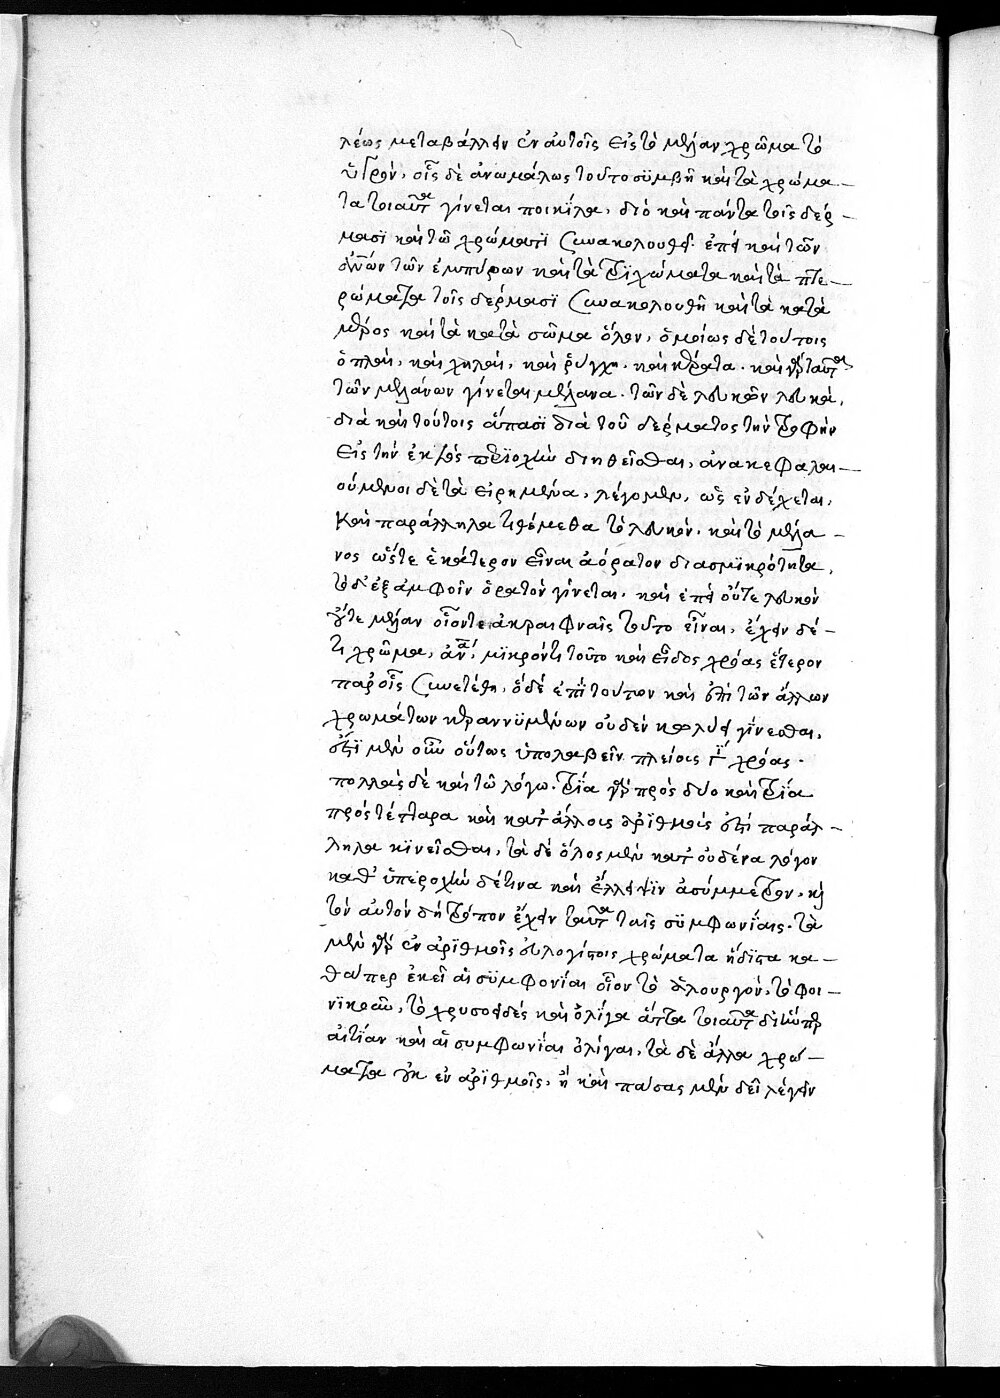 λέως μεταβάλλειν ἐν αὐτοῖς εἰς τὸ μέλαν χρῶμα τὸ
ὑγρόν, οἷς δὲ ἀνωμάλως τοῦτο σϋμβῆ καὶ τὰ χρώμα—
τα τοιαῦτα γίνεται ποικίλα, διὸ καὶ πάντα τοῖς δέρ—
μασϊ καὶ τῶ χρώματϊ συνακολουθεῖ. ἐπεὶ καὶ τῶν
τῶν ἐμπύρων καὶ τὰ τρϊχώματα καὶ τὰ πτε—
ρώματα τοῖς δέρμασϊ συνακολουθῆ καὶ τὰ κατὰ
μέρος καὶ τὰ κατὰ σῶμα ὅλον, ὁμοίως δὲ τούτοις
ὁπλαὶ, καὶ χηλαὶ, καὶ ῥύγχη. καὶ κέρατα. καὶ γὰρ ταῦτα
τῶν μελάνων γίνεται μέλανα. τῶν δὲ λευκῶν λευκά,
διὰ καὶ τούτοις ἅπασϊ διὰ τοῦ δέρματος τὴν τροφὴν
εἰς τὴν ἐκτὸς περϊοχὴν διηθεῖσθαι, ἀνακεφαλαι—
ούμενοι δὲ τὰ εἰρημένα, λέγομεν, ὡς ἐνδέχεται,
Καὶ παράλληλα τιθέμεθα τὸ λευκόν. καὶ τὸ μέλα—
νος ὥστε ἑκάτερον εἶναι ἀόρατον διασμϊκρότητα,
τὸ δ' ἐξ ἀμφοῖν ὁρατὸν γίνεται. καὶ ἐπεὶ οὔτε λευκὸν
οὔτε μέλαν οἷόντε ἀκραιφναῖς τοῦτο εἶναι, ἔχειν δέ—
τι χρῶμα, μϊκρόν τι τοῦτο καὶ εἶδος χρόας ἕτερον
παρ' οἷς συνετέθη, ὁ δὲ ἐπὶ τούτων καὶ ἐπὶ τῶν ἄλλων
χρωμάτων κεραννϋμένων οὐδὲν κωλύει γίνεσθαι,
ἔστϊ μὲν οὖν οὕτως ὑπολαβεῖν πλείοις χρόας.
πολλαὶς δὲ καὶ τῶ λόγω. τρία γὰρ πρὸς δύο καὶ τρία
πρὸς τέτταρα καὶ κατ' ἄλλοις ἀριθμοὶς ἔστι παράλ—
ληλα κϊνεῖσθαι, τὰ δὲ ὅλος μὲν κατ' οὐδένα λόγον
καθ' ὑπεροχὴν δέ τινα καὶ ἔλλειψϊν ἀσύμμετρον, καὶ
τὸν αὐτὸν δὴ τρόπον ἔχειν ταῦτα ταῖς σϋμφωνίαις. τὰ
μὲν γὰρ ἐν ἀρϊθμοῖς εὐλογίστοις χρώματα ἥδϊστα κα—
θάπερ ἐκεῖ αἱ σϋμφονίαι οἷον τὸ ἁλουργόν, τὸ φοι—
νϊκοῦν, τὸ χρυσοειδὲς καὶ ὀλίγα ἄττα τοιαῦτα δι' ἥνπερ
αἰτίαν καὶ αἱ συμφωνίαι ὀλίγαι, τὰ δὲ ἄλλα χρώ—
ματα οὐκ ἐν ἀρϊθμοῖς, ἢ καὶ πάσας μὲν δεῖ λέγειν